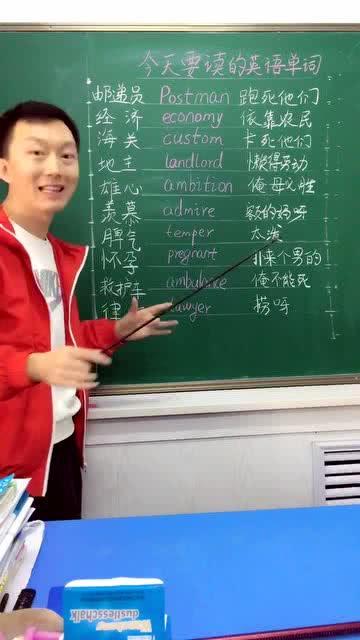 今天要读的英语单词
邮递员 Postman 跑死他们
经济 economy 依靠农民
海关 custom 卡死他们
地主 landlord 懒得劳动
雄心 ambition 俺母父性
羡慕 admire 额的妈呀
脾气 temper 太泼
怀孕 pregnant 扑来个男的
救护车 ambulance 俺不能死
律 lawyer 捞呀
dustlesschalk